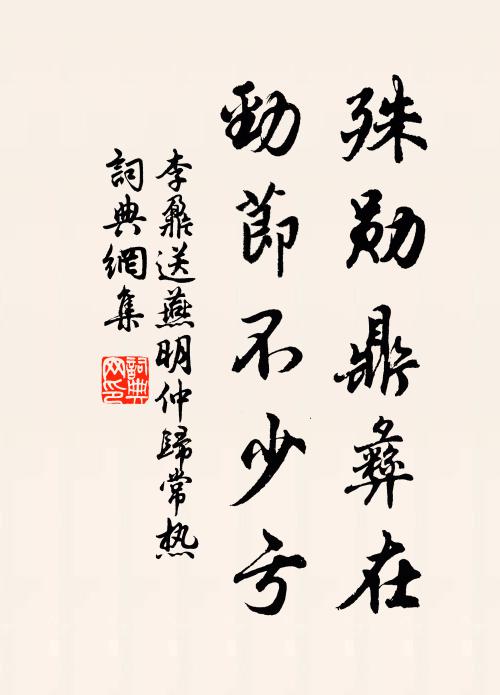 殊勋鼎彝在
勁節不少亏
李鼐送燕明仲歸常热
詞典網集
詞典网印